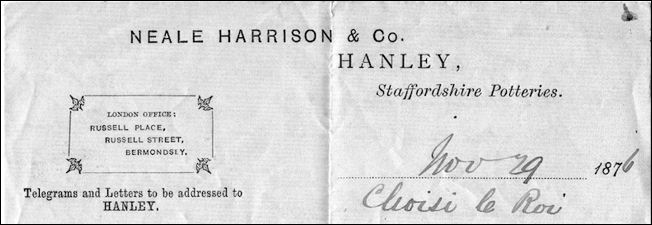 NEALE HARRISON & Co.
HANLEY,
Staffordshire Potteries.
LONDON OFFICE:
RUSSELL PLACE,
RUSSELL STREET,
BERMONDSEY.
Telegrams and Letters to be addressed to
HANLEY.
Nov 29 1876
Choisi le Roi